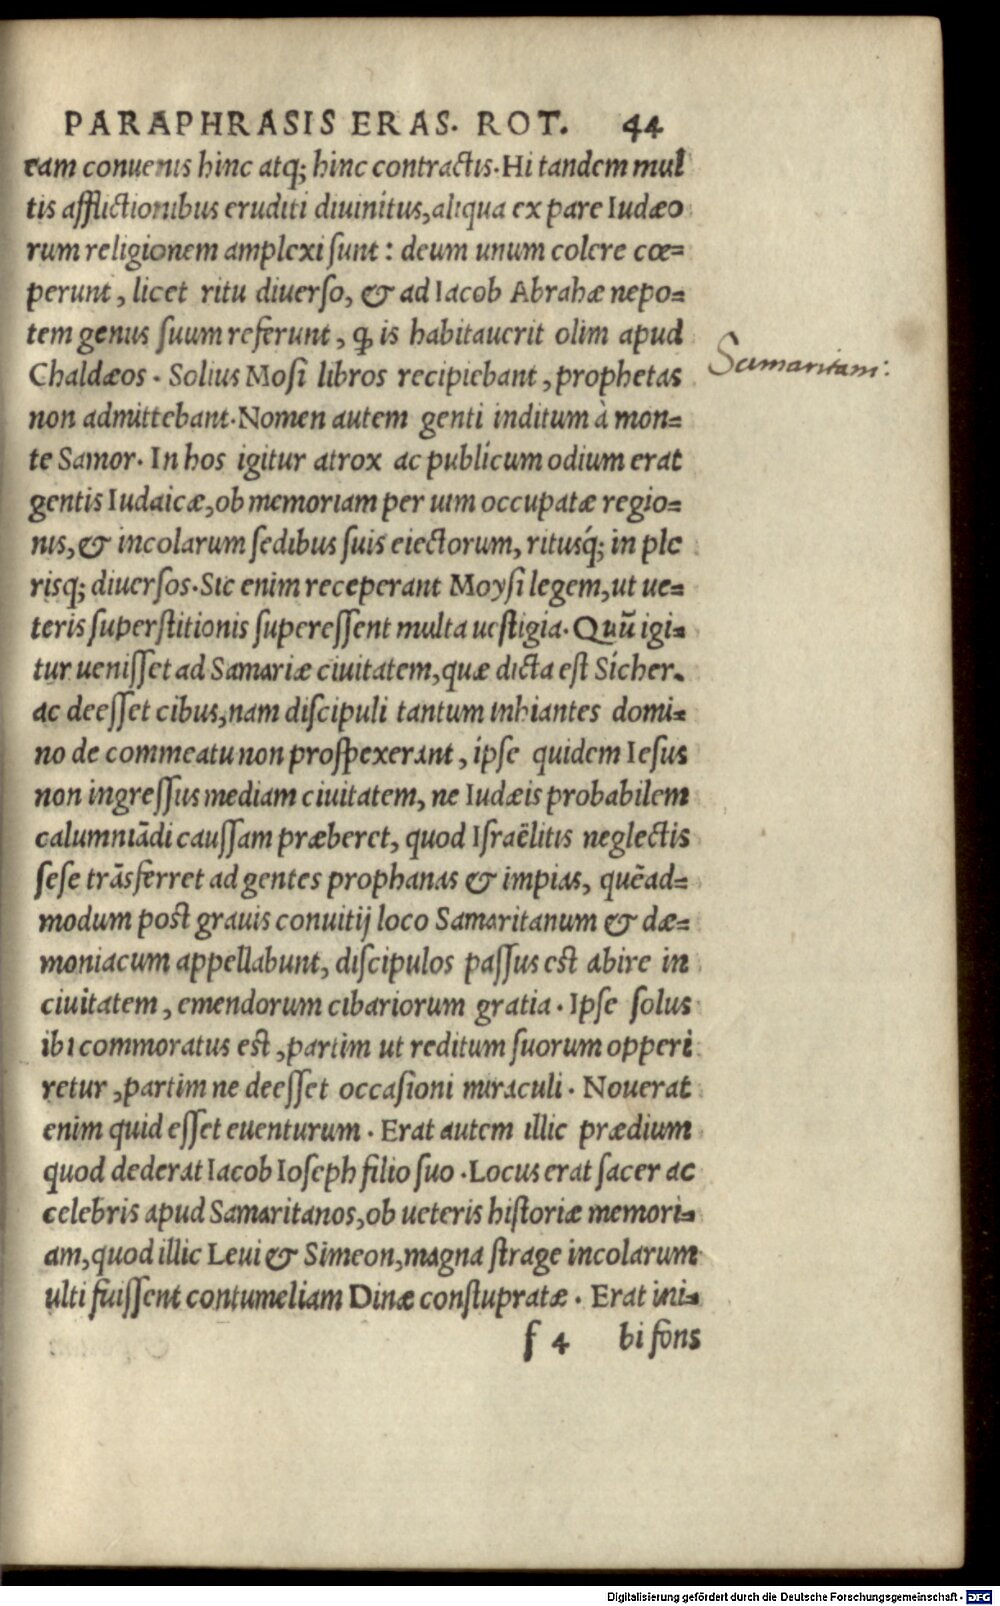 PARAPHRASIS ERAS. ROT. 44
eam conuenis hinc atq; hinc contractis. Hi tandem mul
tis afflictionibus eruditi diuinitus, aliqua ex pare Iudæo
rum religionem amplexi sunt: deum unum colere cœ=
perunt, licet ritu diuerso, & ad Iacob Abrahæ nepo=
tem genus suum referunt, ꝙ is habitauerit olim apud
Chaldæos. Solius Mosi libros recipiebant, prophetas
non admittebant. Nomen autem genti inditum à mon=
te Samor. In hos igitur atrox ac publicum odium erat
gentis Iudaicæ, ob memoriam per uim occupatæ regio=
nis, & incolarum sedibus suis eiectorum, ritusq́; in ple
risq; diuersos. Sic enim receperant Moysi legem, ut ue=
teris superstitionis superessent multa uestigia. Quũ igi=
tur uenisset ad Samariæ ciuitatem, quæ dicta est Sicher.
ac deesset cibus, nam discipuli tantum inhiantes domi=
no de commeatu non prospexerant, ipse quidem Iesus
non ingressus mediam ciuitatem, ne Iudæis probabilem
calumniãdi caussam præberet, quod Israëlitis neglectis
sese trãsferret ad gentes prophanas & impias, quẽad=
modum post grauis conuitij loco Samaritanum & dæ=
moniacum appellabunt, discipulos passus est abire in
ciuitatem, emendorum cibariorum gratia. Ipse solus
ibi commoratus est, partim ut reditum suorum opperi
retur, partim ne deesset occasioni miraculi. Nouerat
enim quid esset euenturum. Erat autem illic prædium
quod dederat Iacob Ioseph filio suo. Locus erat sacer ac
celebris apud Samaritanos, ob ueteris historiæ memori=
am, quod illic Leui & Simeon, magna strage incolarum
ulti fuissent contumeliam Dinæ constupratæ. Erat ini=
f 4 bi fons
Samaritani:
Digitalisierung gefördert durch die Deutsche Forschungsgemeinschaft - DFG